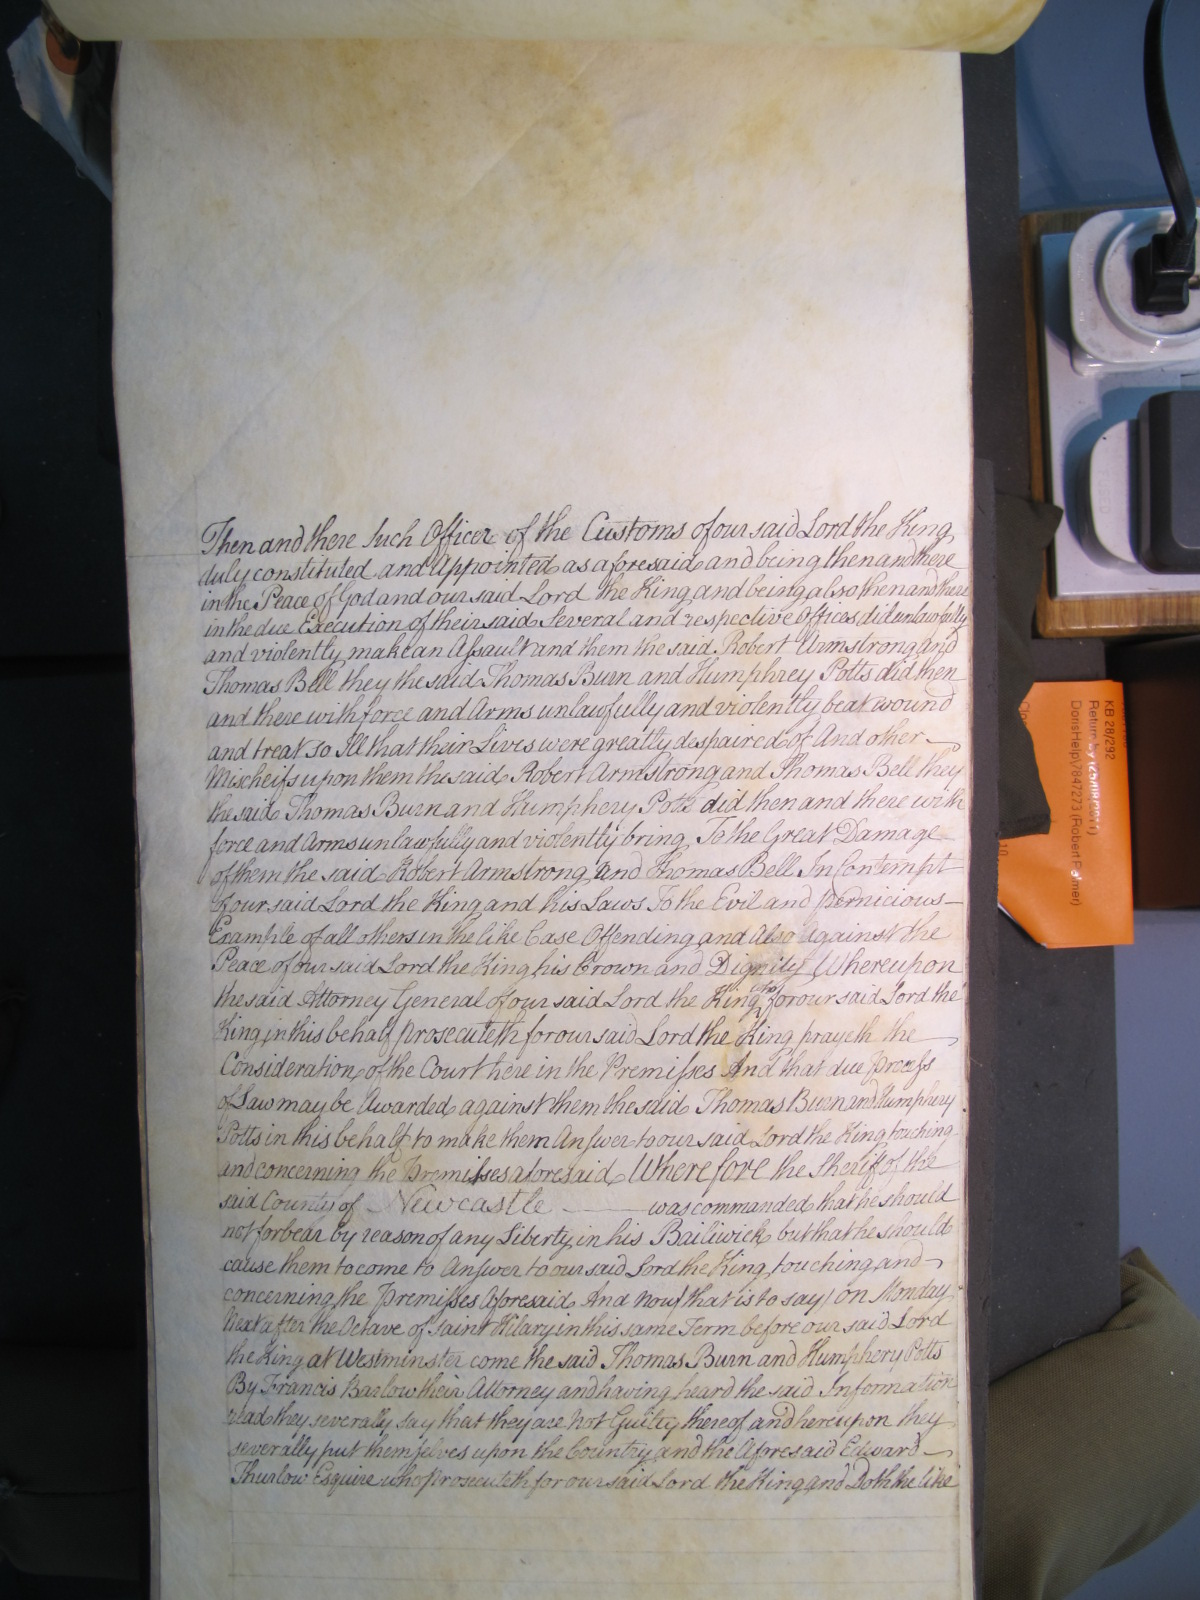 Then and there Such Officer of the Customs of our said Lord the King
duly constituted and Appointed as aforesaid and being then and there
in the Peace of God and our said Lord the King and being also then and there
in the due Execution of their said Several and respective Offices did unlawfully
and violently make an Assault and them the said Robert Armstrong and
Thomas Bell they the said Thomas Burn and Humphrey Potts did then
and there with force and Arms unlawfully and violently beat wound
and treat so Ill that their Lives were greatly despaired of And other
Mischeifs upon them the said Robert Armstrong and Thomas Bell they
the said Thomas Burn and Humphery Potts did then and there with
force and Arms unlawfully and violently bring To the Great Damage
of them the said Robert Armstrong and Thomas Bell In Contempt
of our said Lord the King and his Laws To the Evil and Pernicious
Example of all others in the like Case Offending and Also against the
Peace of our said Lord the King his Crown and Dignity Whereupon
the said Attorney General of our said Lord the King who for our said Lord the
King in this behalf prosecuteth for our said Lord the King prayeth the
Consideration of the Court here in the Premisses And that due Process
of Law may be Awarded against them the said Thomas Burn and Humphery
Potts in this behalf to make them Answer to our said Lord the King touching
and concerning the Premisses aforesaid Wherefore the Sheriff of the
said County of Newcastle was commanded that he should
not forbear by reason of any Liberty in his Bailiwick but that he should
cause them to come to Answer to our said Lord the King touching and
concerning the Premisses Aforesaid And now that is to say on Monday
Next after the Octave of Saint Hilary in this same Term before our said Lord
the King at Westminster come the said Thomas Burn and Humphery Potts
By Francis Barlow their Attorney and having heard the said Information
read they severally say that they are not Guilty thereof and hereupon they
severally put themselves upon the Country and the Aforesaid Edward
Thurlow Esquire who prosecuteth for our said Lord the King and Doth the like
KB 28/292
DorisHelp\7847273 (Robert Palmer)